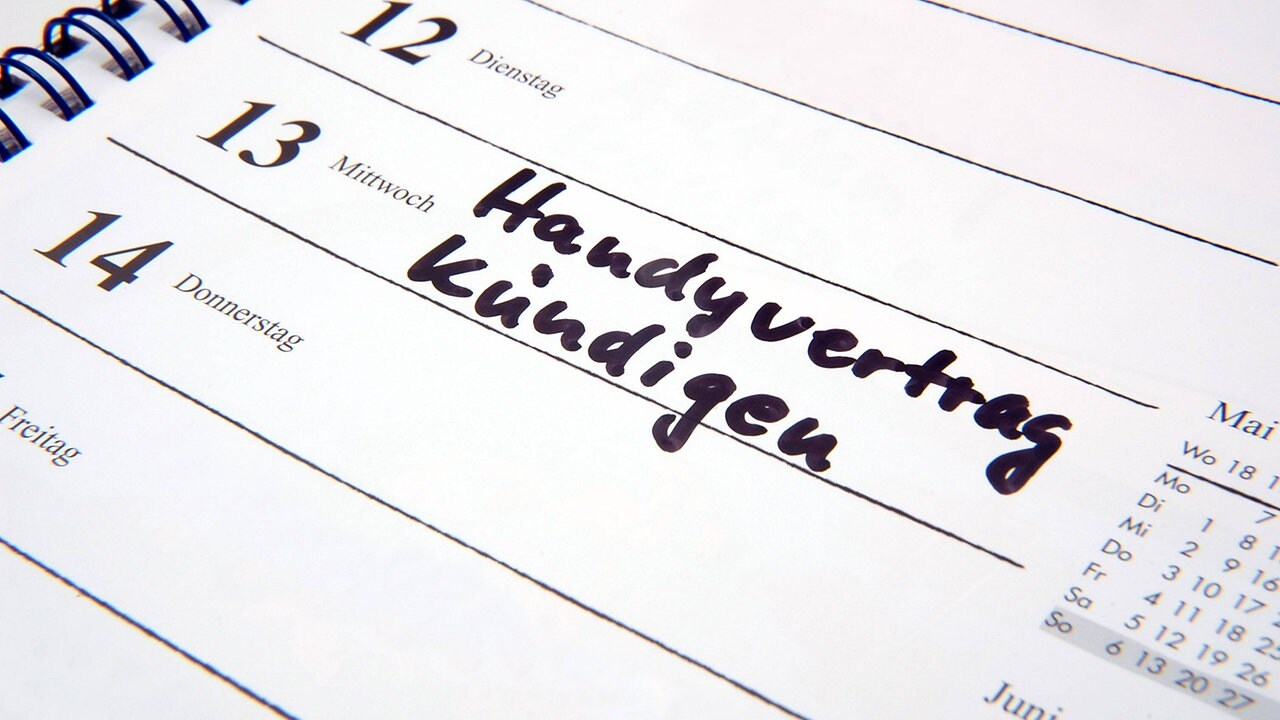 12 Dienstag
13 Mittwoch
Handyvertrag
kündigen
14 Donnerstag
Freitag
Mai
Wo 18
Mo 7
Di 1 8
Mi 2 9 16
Do 3 10 17
Fr 4 11 18 25
Sa 5 12 19 26
So 6 13 20 27
Juni